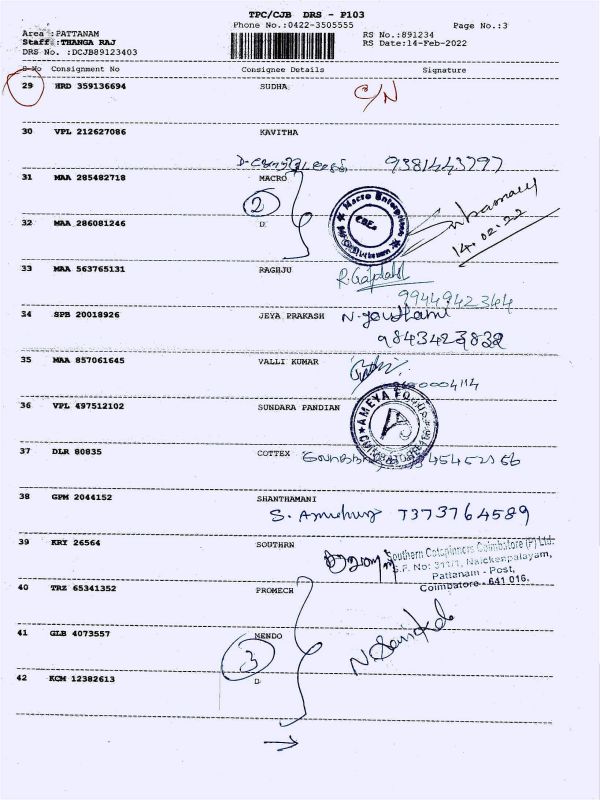 TPC/CJB DRS - P103
Phone No.:0422-3505555
Page No.:3
Area :PATTANAM
Staff :THANGA RAJ
DRS No. :DCJB89123403
RS No.:891234
RS Date:14-Feb-2022
S No Consignment No Consignee Details Signature
29 HRD 359136694 SUDHA C/N
30 VPL 212627086 KAVITHA
9381443797
31 MAA 285482718 MACRO
2
Macro Enterprises
32 MAA 286081246 D
14.02.22
33 MAA 563765131 RAGHJU
9944942344
34 SPB 20018926 JEYA PRAKASH
9843423832
35 MAA 857061645 VALLI KUMAR
36 VPL 497512102 SUNDARA PANDIAN
AMEYA
37 DLR 80835 COTTEX
38 GPM 2044152 SHANTHAMANI
7373764589
39 KRY 26564 SOUTHRN
Southern Cotspinners Coimbatore (P) Ltd.
S.F. No: 311/1, Naickenpalayam,
Pattanam - Post,
Coimbatore - 641 016.
40 TRZ 65341352 PROMECH
41 GLB 4073557 MENDO
3
42 KCM 12382613 D